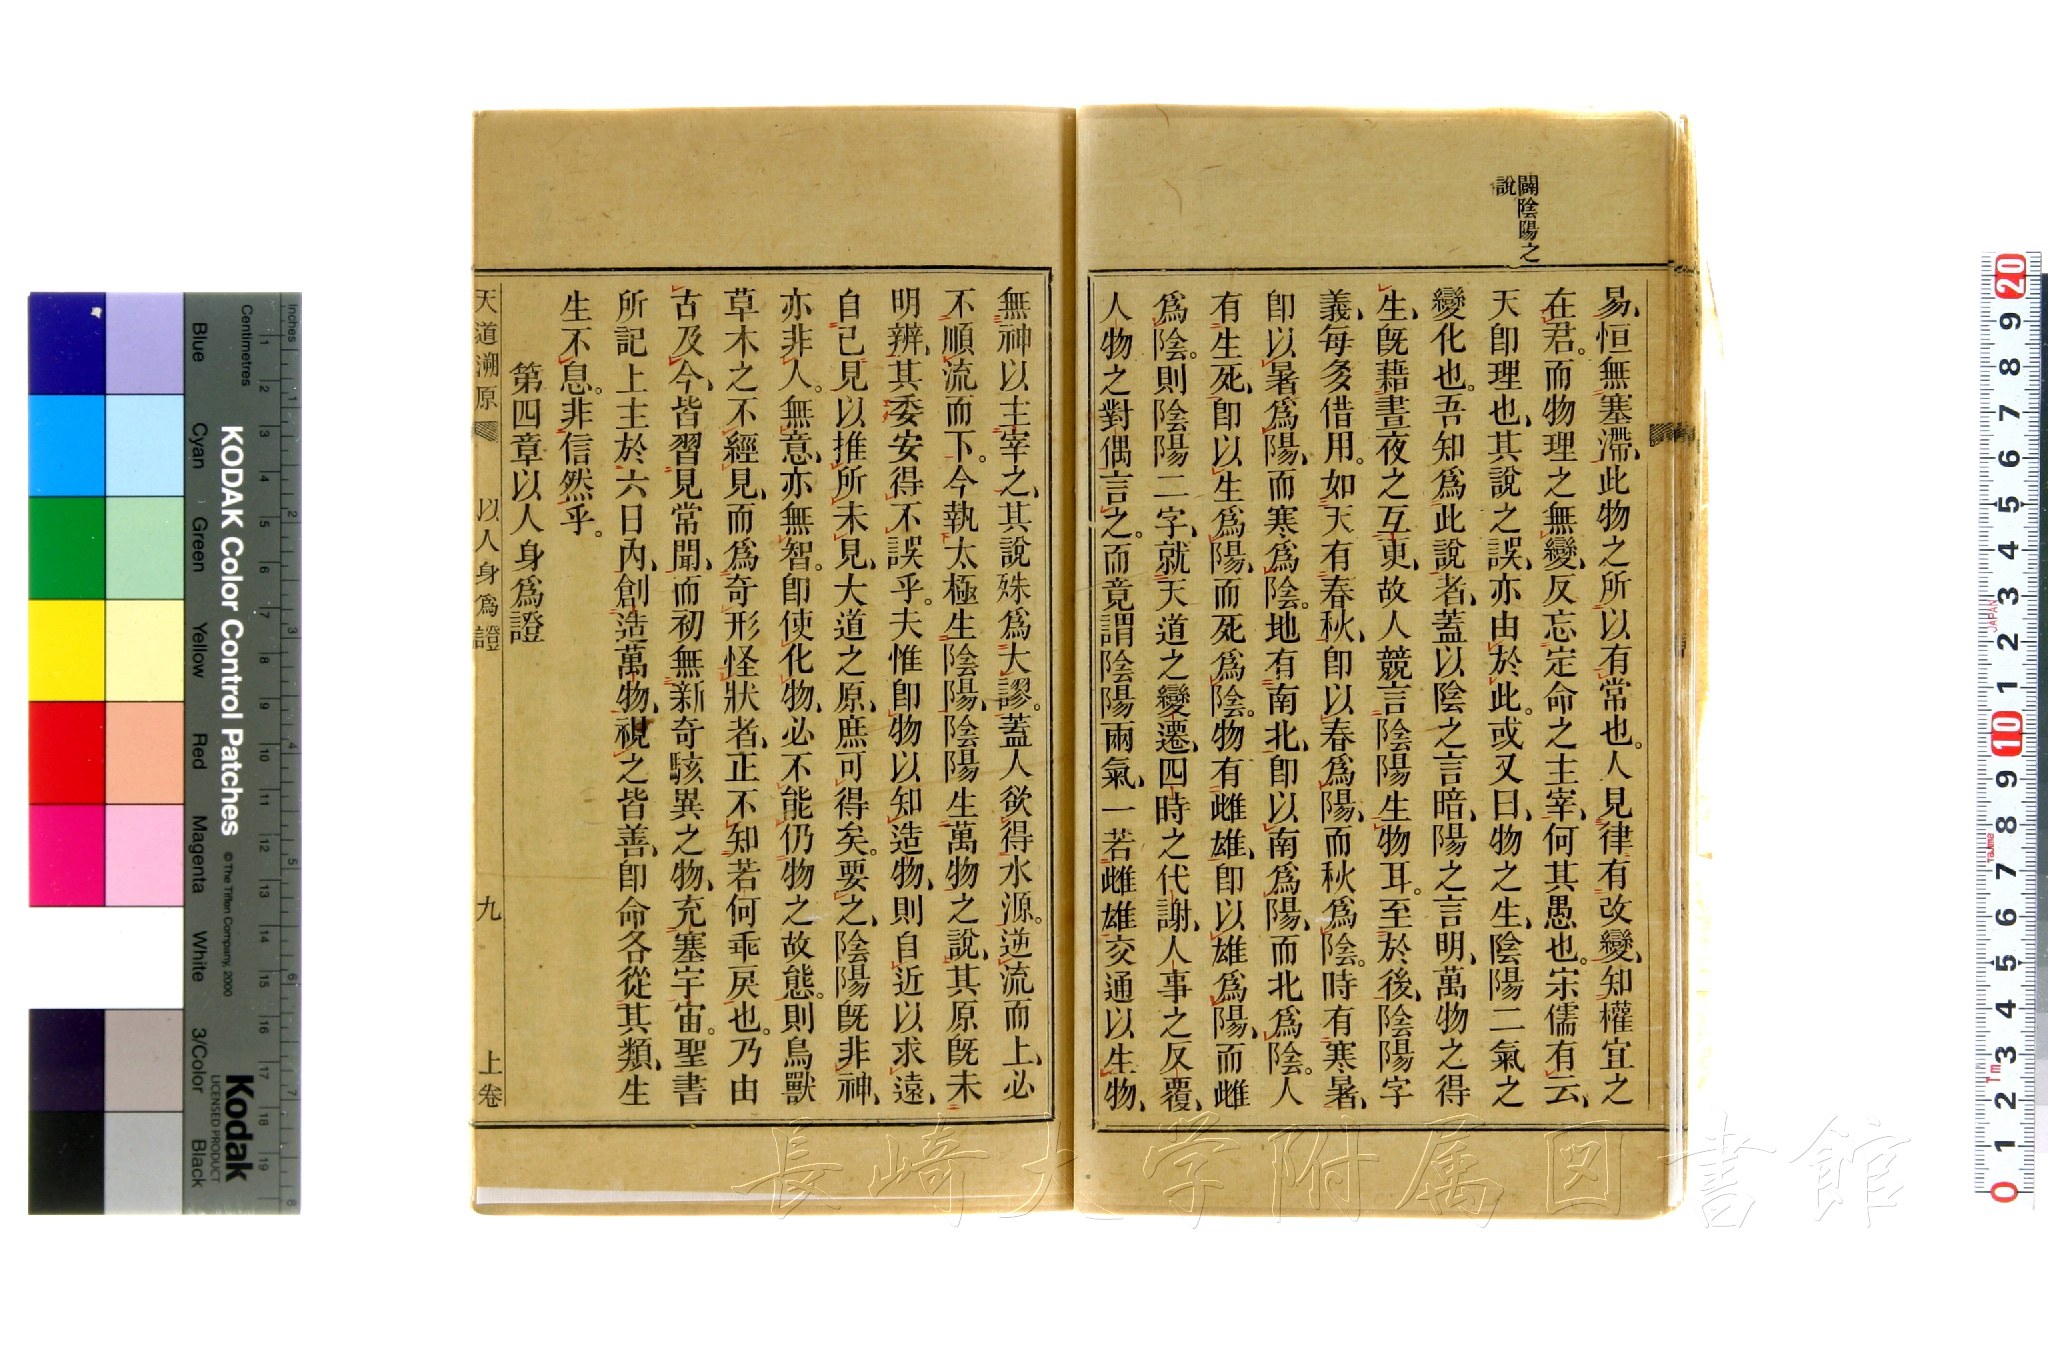 闢陰陽之
說
易、恒無塞滯、此物之所以有常也。人見律有改變、知權宜之
在君。而物理之無變、反忘定命之主宰、何其愚也。宋儒有云、
天卽理也、其說之誤、亦由於此。或又曰、物之生、陰陽二氣之
變化也。吾知爲此說者、蓋以陰之言暗、陽之言明、萬物之得
生、旣藉晝夜之互更、故人競言陰陽生物耳。至於後、陰陽字
義、每多借用。如天有春秋、卽以春爲陽、而秋爲陰。時有寒暑、
卽以暑爲陽、而寒爲陰。地有南北、卽以南爲陽、而北爲陰。人
有生死、卽以生爲陽、而死爲陰。物有雌雄、卽以雄爲陽、而雌
爲陰。則陰陽二字、就天道之變遷、四時之代謝、人事之反覆、
人物之對偶言之。而竟謂陰陽兩氣、一若雌雄交通以生物、
無神以主宰之、其說殊爲大謬。蓋人欲得水源。逆流而上、必
不順流而下。今執太極生陰陽、陰陽生萬物之說、其原旣未
明辨、其委安得不誤乎。夫惟卽物以知造物、則自近以求遠、
自己見以推所未見、大道之原、庶可得矣。要之、陰陽旣非神、
亦非人。無意、亦無智。卽使化物、必不能仍物之故態。則鳥獸
草木之不經見、而爲奇形怪狀者、正不知若何乖戾也。乃由
古及今、皆習見常聞、而初無新奇駭異之物、充塞宇宙。聖書
所記上主於六日內、創造萬物、視之皆善、卽命各從其類、生
生不息。非信然乎。
第四章以人身爲證
天道溯原 以人身爲證 九 上卷
KODAK Color Control Patches
© The Tiffen Company, 2000
Kodak
LICENSED PRODUCT
Inches
Centimetres
Blue Cyan Green Yellow Red Magenta White 3/Color Black
1 2 3 4 5 6 7 8
1 2 3 4 5 6 7 8 9 10 11 12 13 14 15 16 17 18 19
20 9 8 7 6 5 4 3 2 1 10 9 8 7 6 5 4 3 2 1 0
JAPAN
Tajima
Tm
長崎大学附属図書館